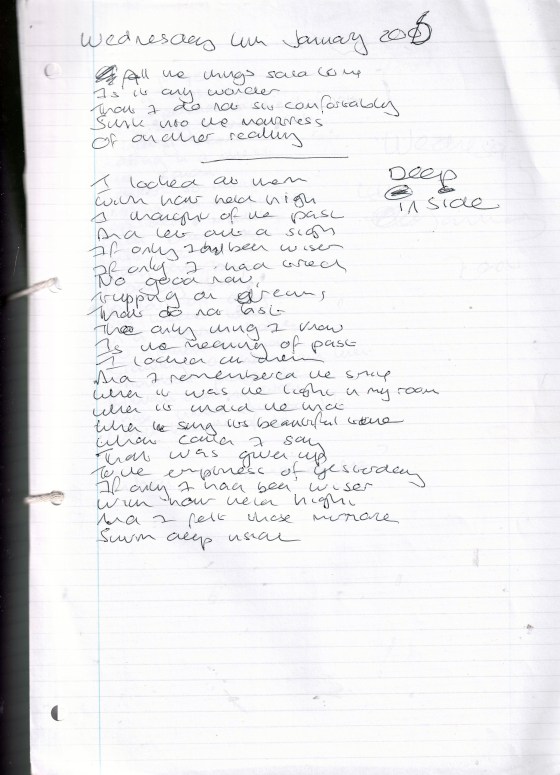 Wednesday 4th January 2006
All the things said come
Is it any wonder
That I do not sit comfortably
Sink into the
Of another reality
Deep
inside
I looked at them
With now held high
I thought of the past
And let out a sigh
If only I had been wiser
If only I had tried
No good now,
Tripping on dreams,
That do not last
The only thing I know
Is the meaning of past
I looked at them
And I remembered the
When it was the light in my room
When it made the
When it sang its beautiful tune
What could I say
That was given up
To the emptiness of yesterday
If only I had been wiser
With now held high
And I felt those
Swim deep inside